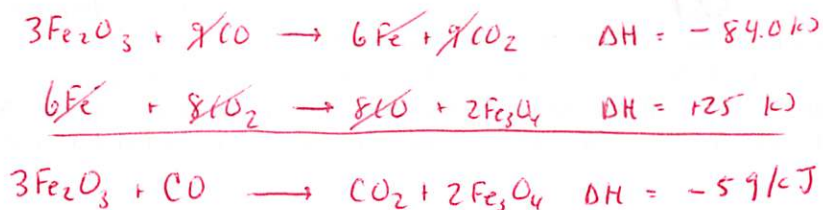 3Fe₂O₃ + 9CO → 6Fe + 9CO₂ ΔH = -84.0 kJ
6Fe + 8CO₂ → 8CO + 2Fe₃O₄ ΔH = +25 kJ
3Fe₂O₃ + CO → CO₂ + 2Fe₃O₄ ΔH = -59 kJ